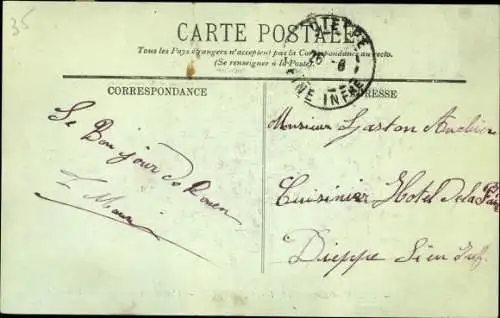 35
CARTE POSTALE
Tous les Pays étrangers n'acceptent pas la Correspondance au recto.
(Se renseigner à la Poste).
DIEPPE
26 - 6
SEINE INFRE
CORRESPONDANCE
ADRESSE
Le Bonjour de Rouen
Monsieur Gaston
Cuisinier Hotel de la Paix
Dieppe Sein Inf.